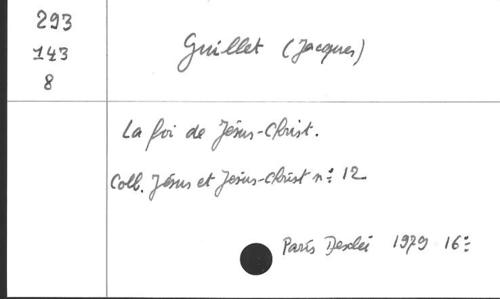 293
143
8
Guillet (Jacques)
La foi de Jésus-Christ.
Coll. Jésus et Jésus-Christ n: 12
Paris Desclée 1979 16: